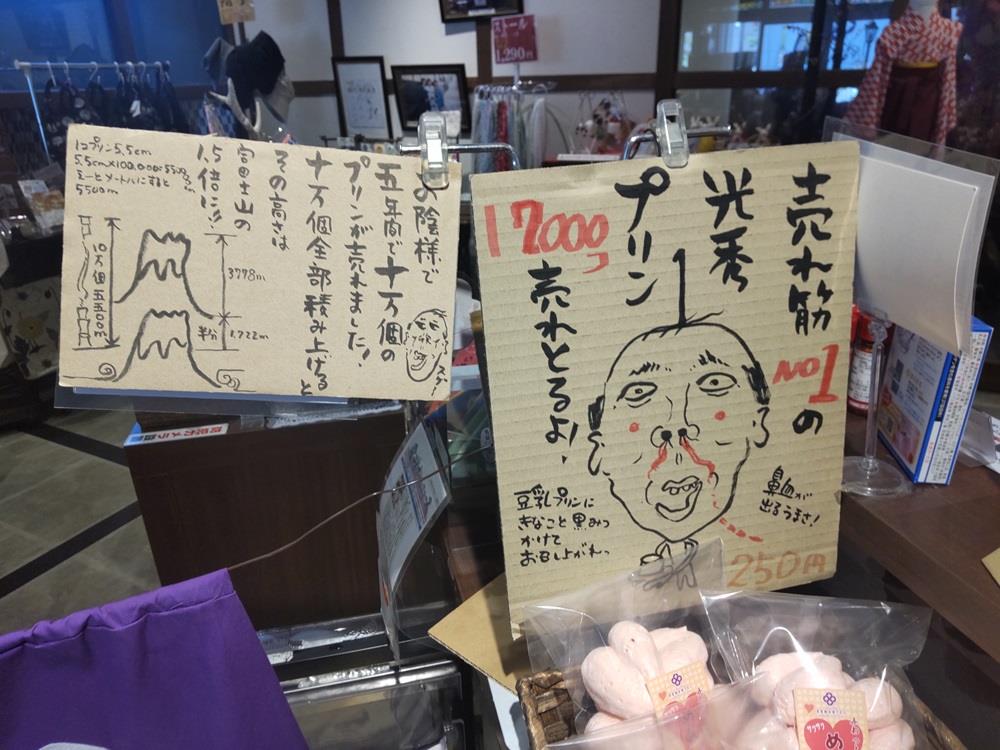 ストール
1,290円
お陰様で
五年間で十万個の
プリンが売れました!
十万個全部積み上げると
その高さは
富士山の
1.5倍に!!
1コプリン5.5cm
5500m
3778m
1,722m
半分
10万個五五00m
スゲー!
売れ筋NO1の
光秀
プリン
17000コ
売れとるよ!
鼻血が
出るうまさ!
豆乳プリンに
きなこと黒みつ
かけて
お召し上がれっ
250円
サクサク
め